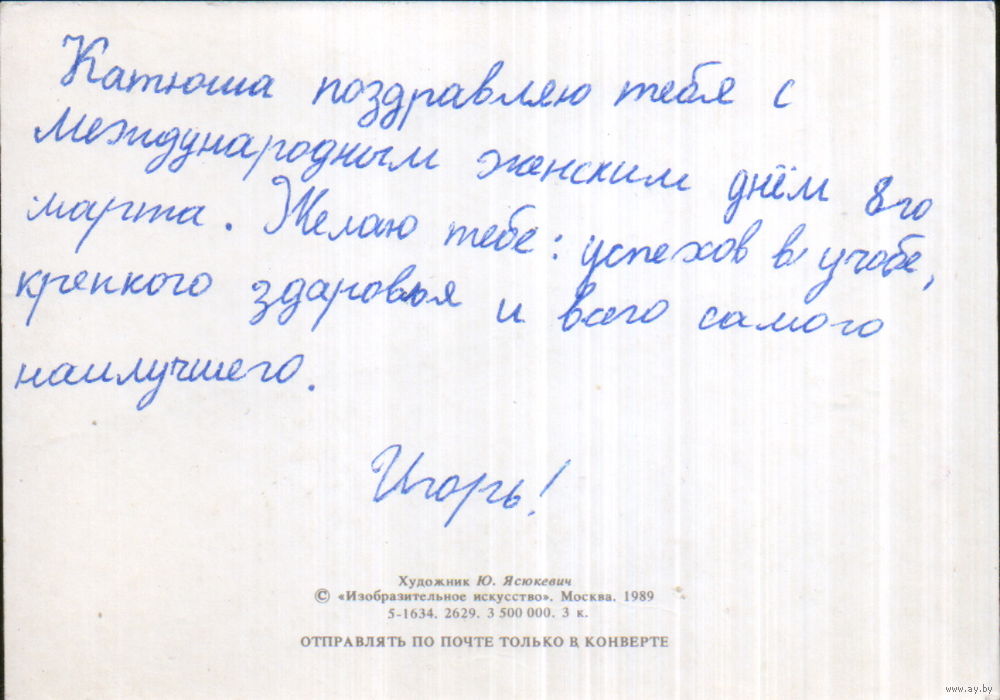 Катюша поздравляю тебя с
международным женским днём 8го
марта. Желаю тебе: успехов в учобе,
крепкого здаровья и всего самого
наилучшего.
Игорь!
Художник Ю. Ясюкевич
© «Изобразительное искусство». Москва. 1989
5-1634. 2629. 3 500 000. 3 к.
ОТПРАВЛЯТЬ ПО ПОЧТЕ ТОЛЬКО В КОНВЕРТЕ
www.ay.by